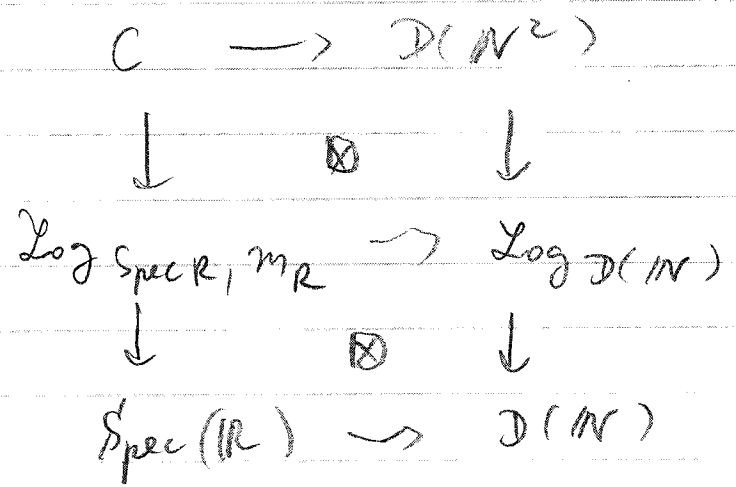 C → D(ℕ²)
↓ ⊠ ↓
Log Spec R, m_R → Log D(ℕ)
↓ ⊠ ↓
Spec(R) → D(ℕ)